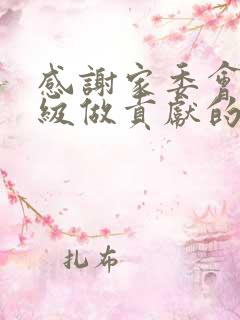 感謝家委會
級做貢獻的
扎布